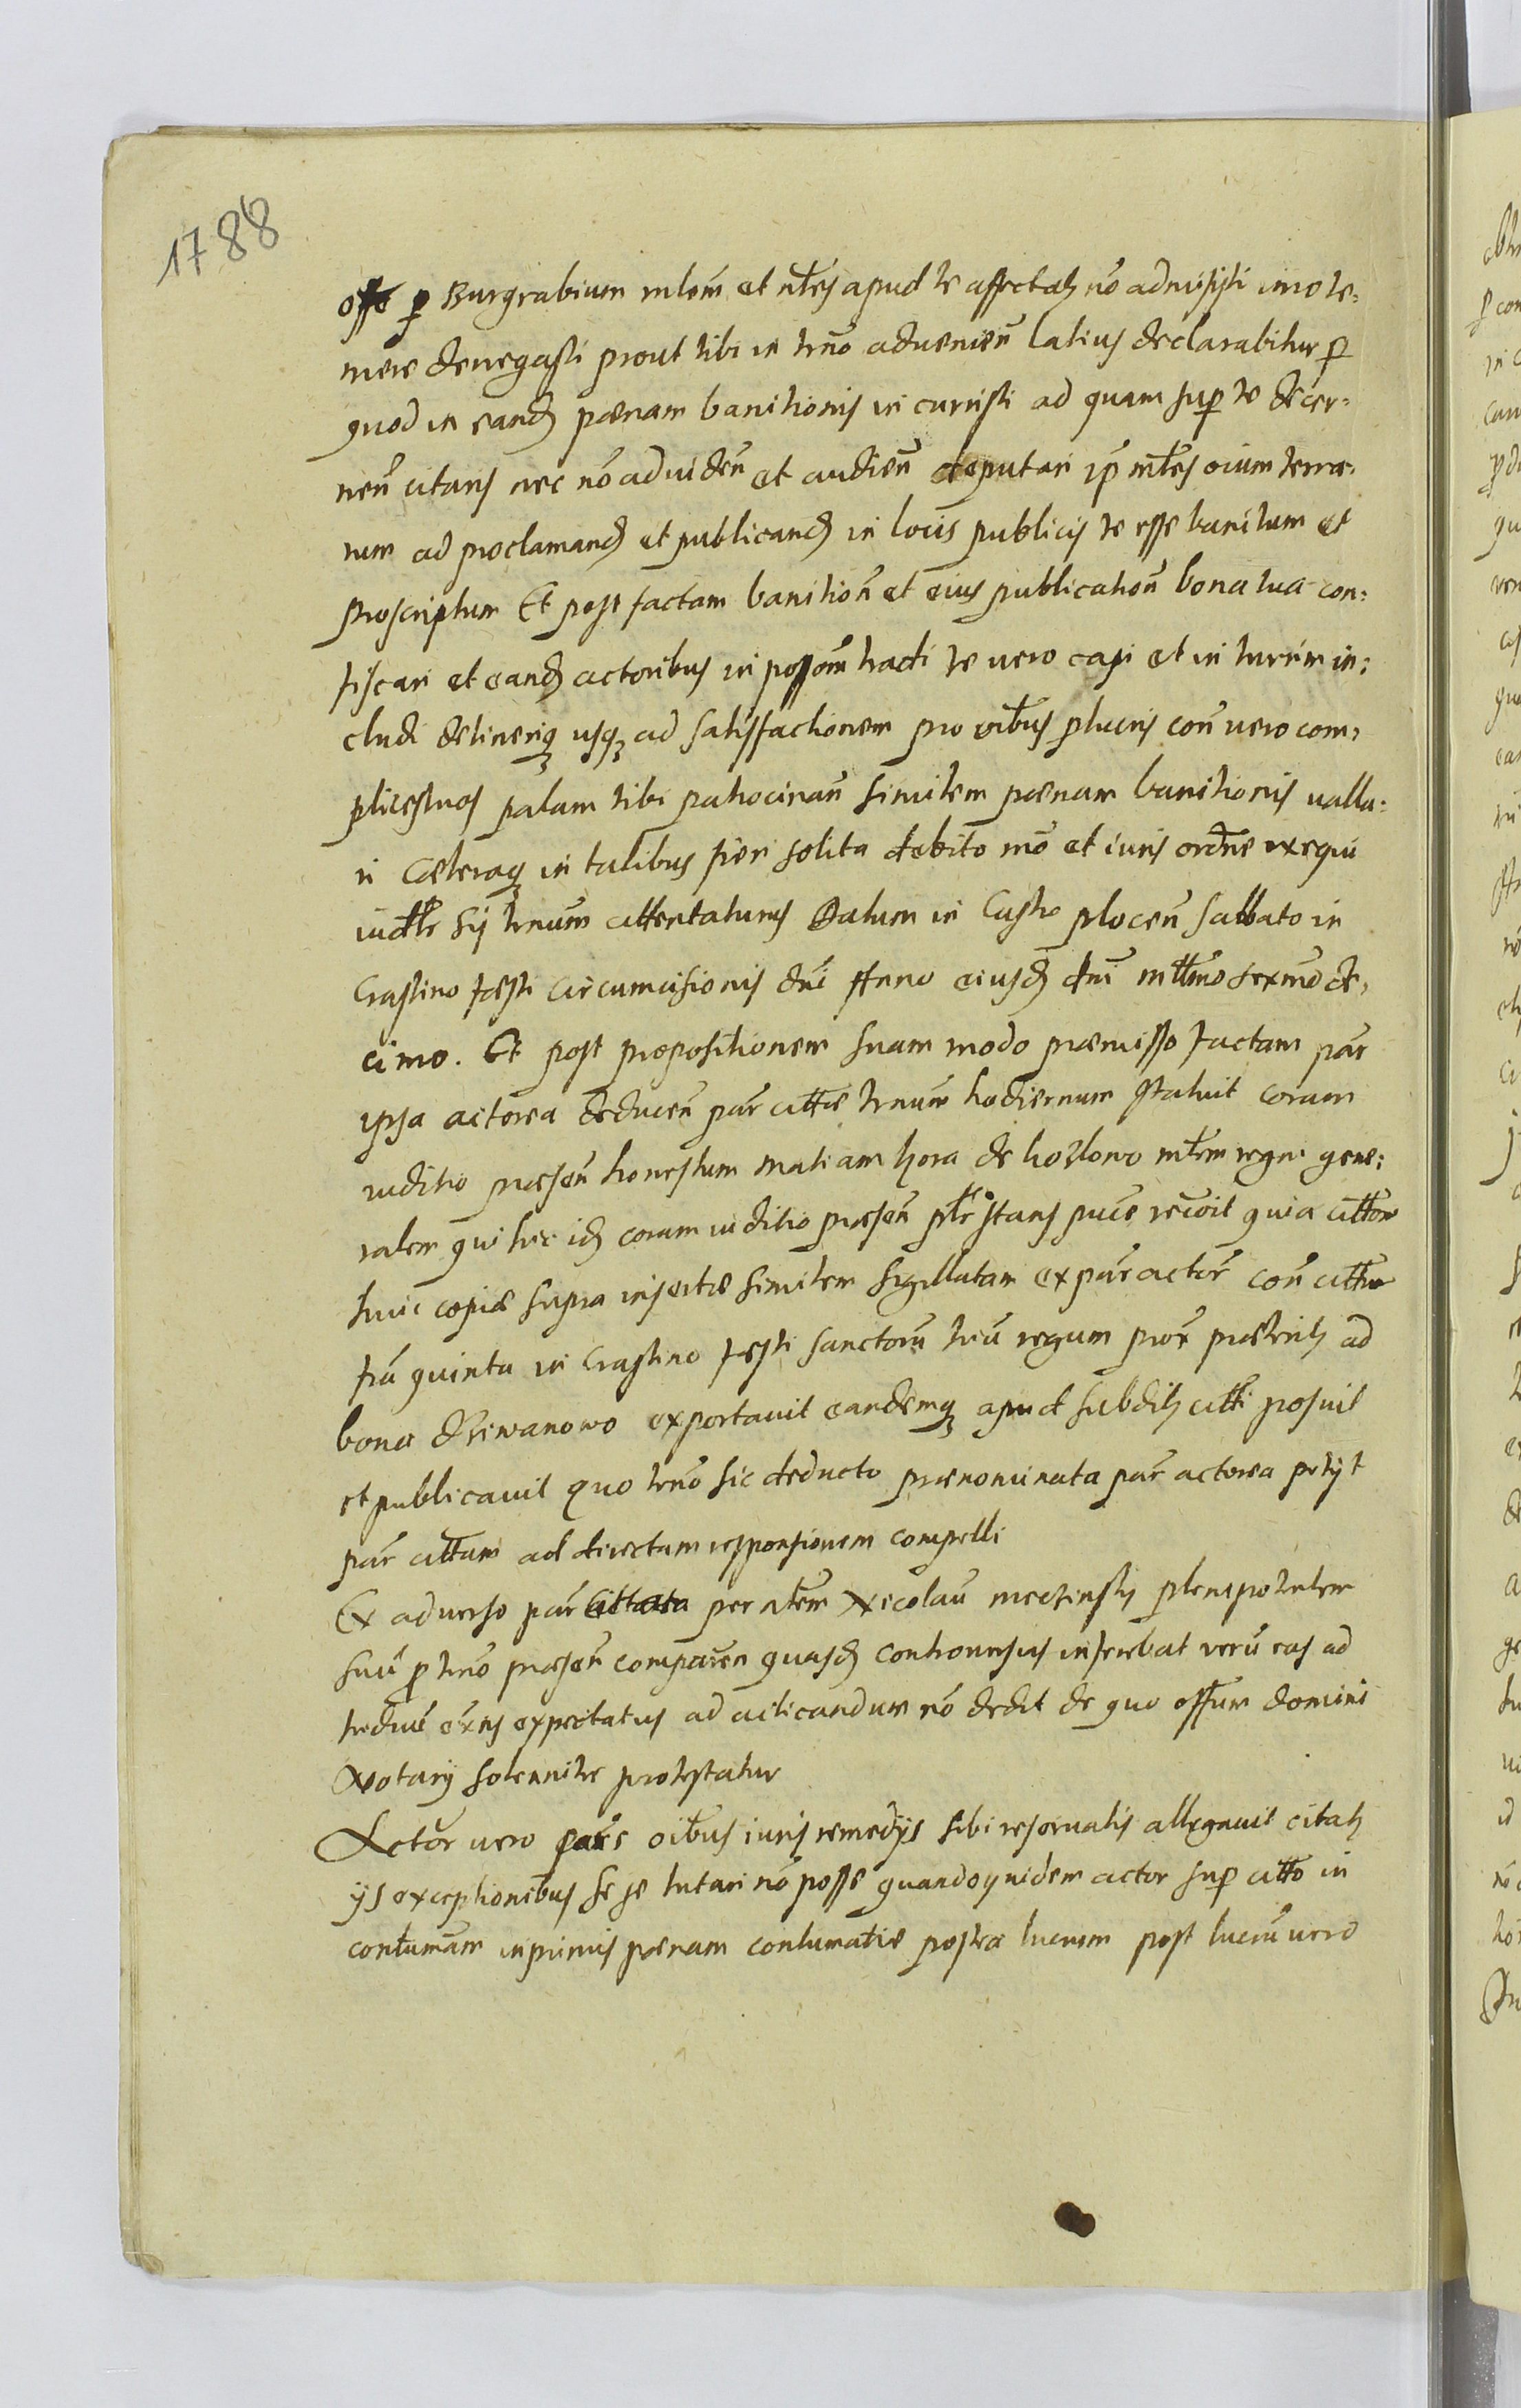 1788
offo p Burgrabium mlem et nles apud te affectatz nō admisisti imo te:
mere denegasti prout tibi in trno aduenien̄ latius declarabitur p
quod in eand pœnam banitionis in curristi ad quam sup te decer:
nen̄ citaris nec nō ad uiden̄ et audien̄ deputari ip mtles oium terra:
rum ad proclamand et publicand in locis publicis te esse banitum et
proscriptum Et post factam banition̄ et eius publication̄ bona tua con:
fiscari et eand actoribus in posson̄ tradi te uero capi et in turrim in:
cludi detineriq usq ad satisfactionem pro oibus plucris con̄ uero com,
plices tuos palam tibi patrocinan̄ similem pœnam banitionis ualla:
ri Cæteraq in talibus fieri solita debito mō et iuris ordne exequi
iudtr sis trnum attentaturus Datum in Castro plocen̄ Sabbato in
Crastino festi circumcisionis dni Anno eiusd dni mttmo sexmo de,
cimo. Et post propositionem suam modo præmisso factam par
ipsa actorea deducen̄ par cittæ trnum hodiernum statuit coram
iuditio præsen̄ honestum Matiam hora de kozlowo mtlem regni gene:
ralem qui hic id coram iuditio præsen̄ psltr stans puce recoit quia citton
huic copiæ supra insertæ similem sigillatam ex par actor con citto
fra quinta in Crastino festi sanctorū triū regum prox præteritz ad
bona Dziwanowo exportauit eandemq apud subditz citti posuit
et publicauit Quo trno sic deducto prænominata par actorea petijt
par cittam ad directam responsionem compelli
Ex aduerso par Cittata per nlem Nicolaū meczinsky plenipotentem
suū p trno præsen̄ comparen quasd controuersias inferebat verū eas ad
tediūe expectatus ad acticandum nō dedit de quo offum domini
Notarij solenniter protestatur
Actor uero pars oibus iuris remedijs sibi reseruatis allegauit citatz
ijs exceptionibus se se tutari nō posse quandoquidem actor sup citto in
contumam inprimis pœnam contumatiæ postea lucrum post lucrū uero